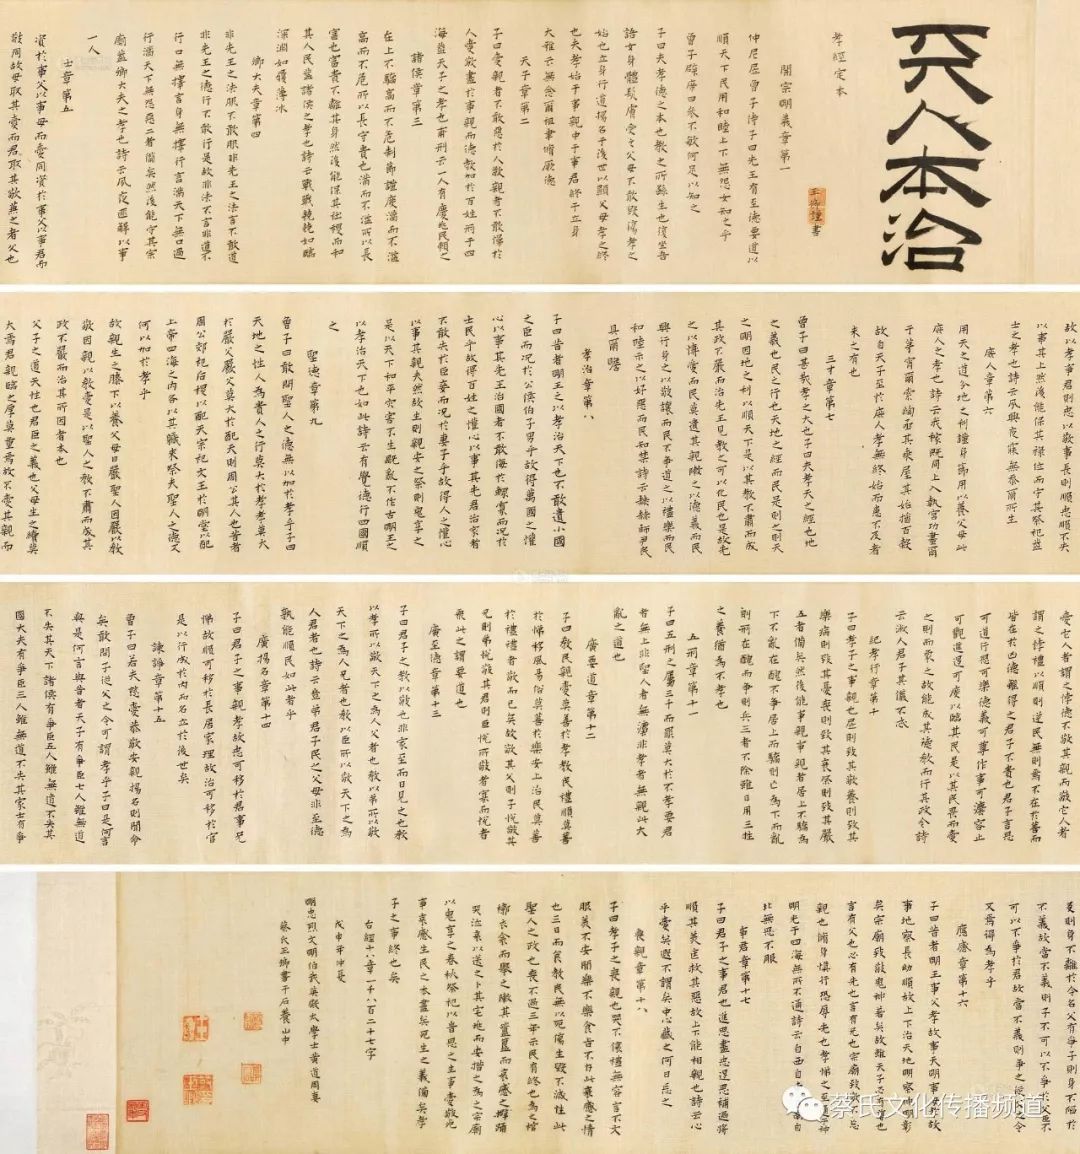 天人本治
孝經定本
玉卿謹書
開宗明義章第一
仲尼居曾子侍子曰先王有至德要道以
順天下民用和睦上下無怨女知之乎
曾子辟席曰參不敏何足以知之
子曰夫孝德之本也教之所繇生也復坐吾
語女身體髮膚受之父母不敢毀傷孝之
始也立身行道揚名于後世以顯父母孝之終
也夫孝始于事親中于事君終于立身
大雅云無念爾祖聿脩厥德
天子章第二
子曰愛親者不敢惡於人敬親者不敢慢於
人愛敬盡於事親而德教加於百姓刑于四
海蓋天子之孝也甫刑云一人有慶兆民賴之
諸侯章第三
在上不驕高而不危制節謹度滿而不溢
高而不危所以長守貴也滿而不溢所以長
守富也富貴不離其身然後能保其社稷而和
其人民蓋諸侯之孝也詩云戰戰兢兢如臨
深淵如履薄冰
卿大夫章第四
非先王之法服不敢服非先王之法言不敢道
非先王之德行不敢行是故非法不言非道不
行口無擇言身無擇行言滿天下無口過
行滿天下無怨惡三者備矣然後能守其宗
廟蓋卿大夫之孝也詩云夙夜匪解以事
一人
士章第五
資於事父以事母而愛同資於事父以事君而
敬同故母取其愛而君取其敬兼之者父也
故以孝事君則忠以敬事長則順忠順不失
以事其上然後能保其祿位而守其祭祀蓋
士之孝也詩云夙興夜寐無忝爾所生
庶人章第六
用天之道分地之利謹身節用以養父母此
庶人之孝也詩云我稼既同上入執宮功晝爾
于茅宵爾索綯亟其乘屋其始播百穀
故自天子至於庶人孝無終始而患不及者
未之有也
三才章第七
曾子曰甚哉孝之大也子曰夫孝天之經也地
之義也民之行也天地之經而民是則之則天
之明因地之利以順天下是以其教不肅而成
其政不嚴而治先王見教之可以化民也是故先
之以博愛而民莫遺其親陳之以德義而民
興行先之以敬讓而民不爭道之以禮樂而民
和睦示之以好惡而民知禁詩云赫赫師尹民
具爾瞻
孝治章第八
子曰昔者明王之以孝治天下也不敢遺小國
之臣而況於公侯伯子男乎故得萬國之懽
心以事其先王治國者不敢侮於鰥寡而況於
士民乎故得百姓之懽心以事其先君治家者
不敢失於臣妾而況於妻子乎故得人之懽心
以事其親夫然故生則親安之祭則鬼享之
是以天下和平灾害不生禍亂不作故明王之
以孝治天下也如此詩云有覺德行四國順
之
聖德章第九
曾子曰敢問聖人之德無以加於孝乎子曰
天地之性人為貴人之行莫大於孝孝莫大
於嚴父嚴父莫大於配天則周公其人也昔者
周公郊祀后稷以配天宗祀文王於明堂以配
上帝四海之內各以其職來祭夫聖人之德又
何以加於孝乎
故親生之膝下以養父母日嚴聖人因嚴以教
敬因親以教愛是以聖人之教不肅而成其
政不嚴而治其所因者本也
父子之道天性也君臣之義也父母生之續莫
大焉君親臨之厚莫重焉故不愛其親而
愛它人者謂之悖德不敬其親而敬它人者
謂之悖禮以順則逆民無則焉不在於善而
皆在於凶德雖得之君子不貴也君子言思
可道行思可樂德義可尊作事可灋容止
可觀進退可度以臨其民是以其民畏而愛
之則而象之故能成其德教而行其政令詩
云淑人君子其儀不忒
紀孝行章第十
子曰孝子之事親也居則致其敬養則致其
樂病則致其憂喪則致其哀祭則致其嚴
五者備矣然後能事親事親者居上不驕為
下不亂在醜不爭居上而驕則亡為下而亂
則刑在醜而爭則兵三者不除雖日用三牲
之養猶為不孝也
五刑章第十一
子曰五刑之屬三千而辠莫大於不孝要君
者無上非聖人者無灋非孝者無親此大
亂之道也
廣要道章第十二
子曰教民親愛莫善於孝教民禮順莫善
於悌移風易俗莫善於樂安上治民莫善
於禮禮者敬而已矣故敬其父則子悅敬其
兄則弟悅敬其君則臣悅所敬者寡而悅者
衆此之謂要道也
廣至德章第十三
子曰君子之教以孝也非家至而日見之也教
以孝所以敬天下之為人父者也教以弟所以敬
天下之為人兄者也教以臣所以敬天下之為
人君者也詩云豈弟君子民之父母非至德
孰能順民如此者乎
廣揚名章第十四
子曰君子之事親孝故忠可移於君事兄
悌故順可移於長居家理故治可移於官
是以行成於內而名立於後世矣
諫諍章第十五
曾子曰若夫慈愛恭敬安親揚名則聞命
矣敢問子從父之令可謂孝乎子曰是何言
與是何言與昔者天子有爭臣七人雖無道
不失其天下諸侯有爭臣五人雖無道不失其
國大夫有爭臣三人雖無道不失其家士有爭
友則身不離於令名父有爭子則身不陷於
不義故當不義則子不可以不爭於父臣不
可以不爭於君故當不義則爭之從父之令
又焉得為孝乎
應感章第十六
子曰昔者明王事父孝故事天明事母孝故
事地察長幼順故上下治天地明察神明彰
矣宗廟致敬鬼神著矣故雖天子必有尊也
言有父也必有先也言有兄也宗廟致敬不忘
親也脩身慎行恐辱先也孝悌之至通於神
明光于四海無所不通詩云自西自東自南自
北無思不服
事君章第十七
子曰君子之事君也進思盡忠退思補過將
順其美匡救其惡故上下能相親也詩云心
乎愛矣遐不謂矣中心藏之何日忘之
喪親章第十八
子曰孝子之喪親也哭不偯禮無容言不文
服美不安聞樂不樂食旨不甘此哀慼之情
也三日而食教民無以死傷生毀不滅性此
聖人之政也喪不過三年示民有終也為之棺
槨衣衾而舉之陳其簠簋而哀慼之擗踊
哭泣哀以送之卜其宅兆而安措之為之宗廟
以鬼享之春秋祭祀以時思之生事愛敬死
事哀慼生民之本盡矣死生之義備矣孝
子之事終也矣
古經十八章一千八百二十七字
戊申年仲夏
明忠烈文明伯武英殿大學士黃道周妻
蔡氏玉卿書于石養山中
蔡氏文化传播频道